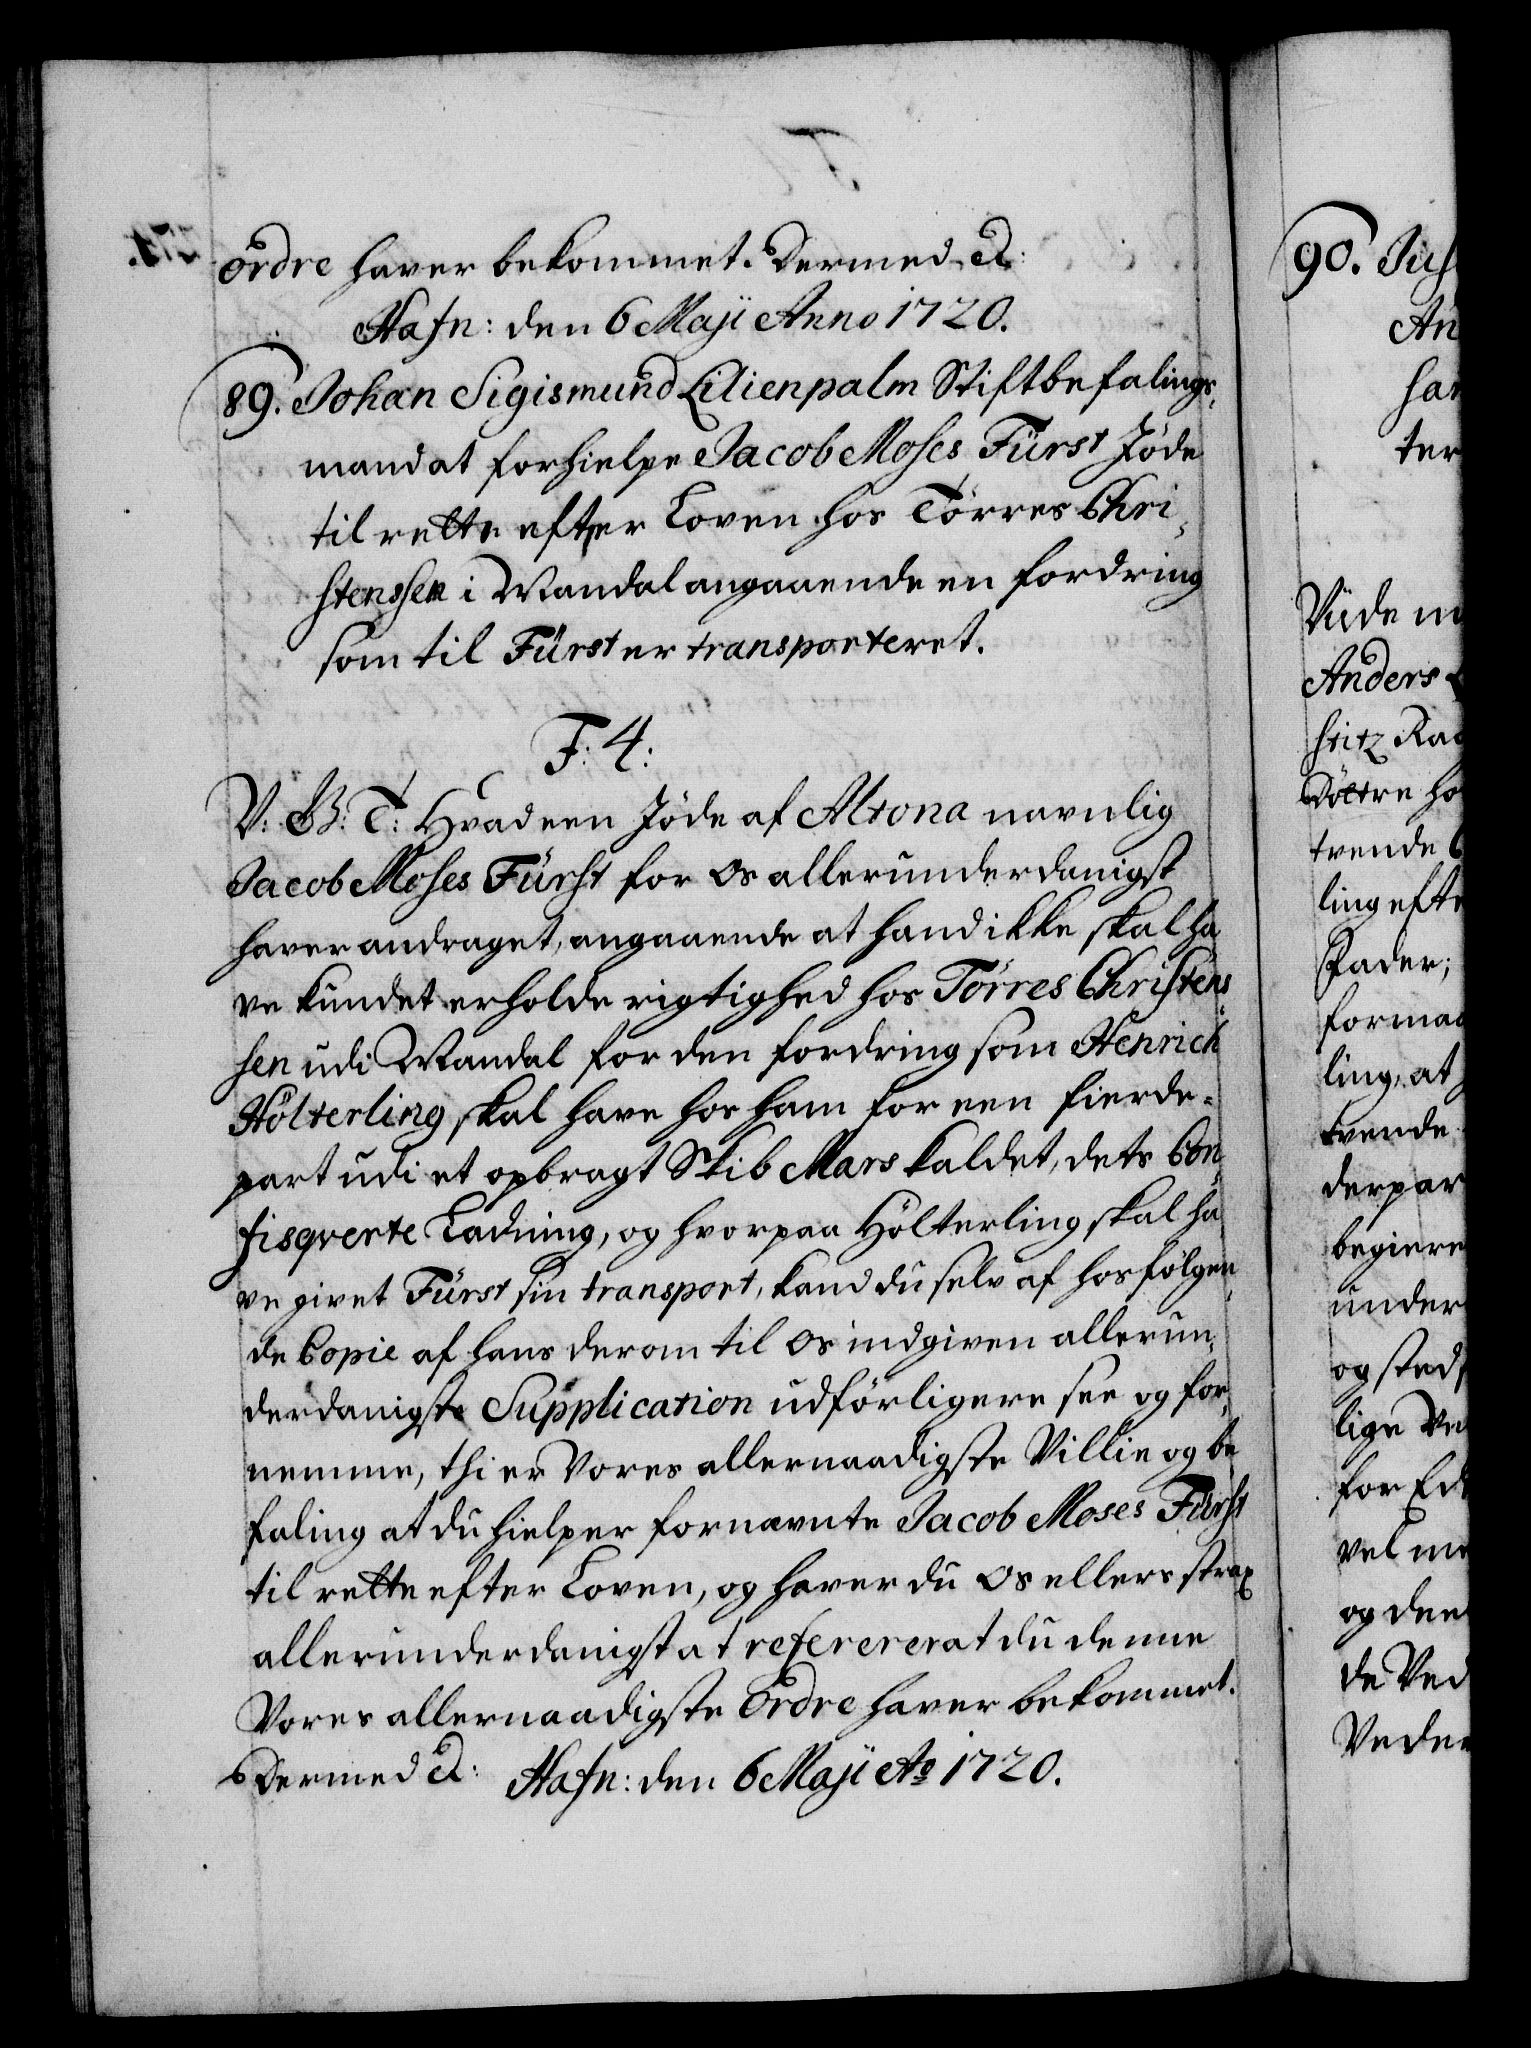 ordre haver bekommet. Dermed etc:
Hafn: den 6 Maji Anno 1720.
89. Johan Sigismund Lilienpalm Stiftbefalings-
mand at forhielpe Jacob Moses Fürst Jöde
til rette efter Loven hos Törres Chri-
stenssen i Mandal angaaende en fordring
som til Fürst er transporteret.
F: 4:
V: G: T: Hvad een Jöde af Altona navnlig
Jacob Moses Fürst for os allerunderdanigst
haver andraget, angaaende at hand ikke skal ha
ve kundet erholde rigtighed hos Törres Christens-
sen udi Mandal for den fordring som Henrich
Hölterling skal have hos ham for een fierde-
part udi et opbragt Skib Mars kaldet, dets Con-
fisqverte Ladning, og hvorpaa Hölterling skal ha-
ve givet Fürst sin transport, kand du selv af hosfölgen-
de Copie af hans derom til os indgiven allerun-
derdanigste Supplication udförligere see og for-
nemme, thi er Vores allernaadigste Villie og be
faling at du hielper fornævnte Jacob Moses Fürst
til rette efter Loven, og haver du os ellers strax
allerunderdanigst at referere at du denne
Vores allernaadigste Ordre haver bekommet.
Dermed etc: Hafn: den 6 Maji Ao 1720.
90. Jus
An
han
ter
Viide m
Anders L
stitz Rad
Döttre ho
trende
ling efte
Fader;
formaa
ling, at
tvende
derpar
begiere
under
og sted
lige Ve
for Ed
vel me
og den
de Ved
Veder